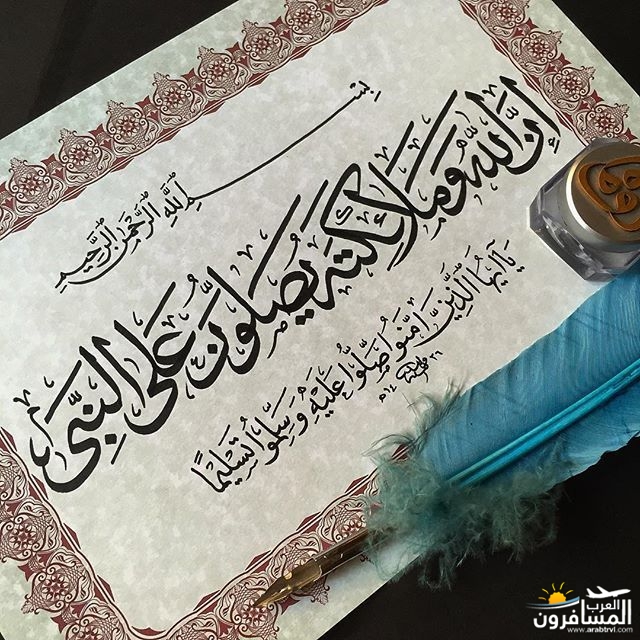 بِسْمِ اللَّهِ الرَّحْمَنِ الرَّحِيمِ
إِنَّ اللَّهَ وَمَلَائِكَتَهُ يُصَلُّونَ عَلَى النَّبِيِّ
يَا أَيُّهَا الَّذِينَ آمَنُوا صَلُّوا عَلَيْهِ وَسَلِّمُوا تَسْلِيمًا
العرب
المسافرون
www.arabtrvl.com